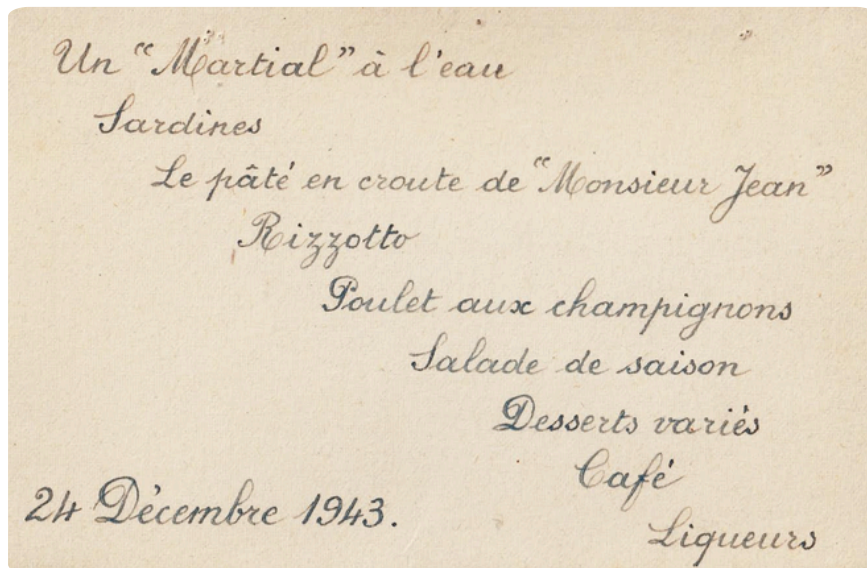 Un “Martial” à l'eau
Sardines
Le pâté en croute de “Monsieur Jean”
Rizzotto
Poulet aux champignons
Salade de saison
Desserts variés
Café
24 Décembre 1943.
Liqueurs